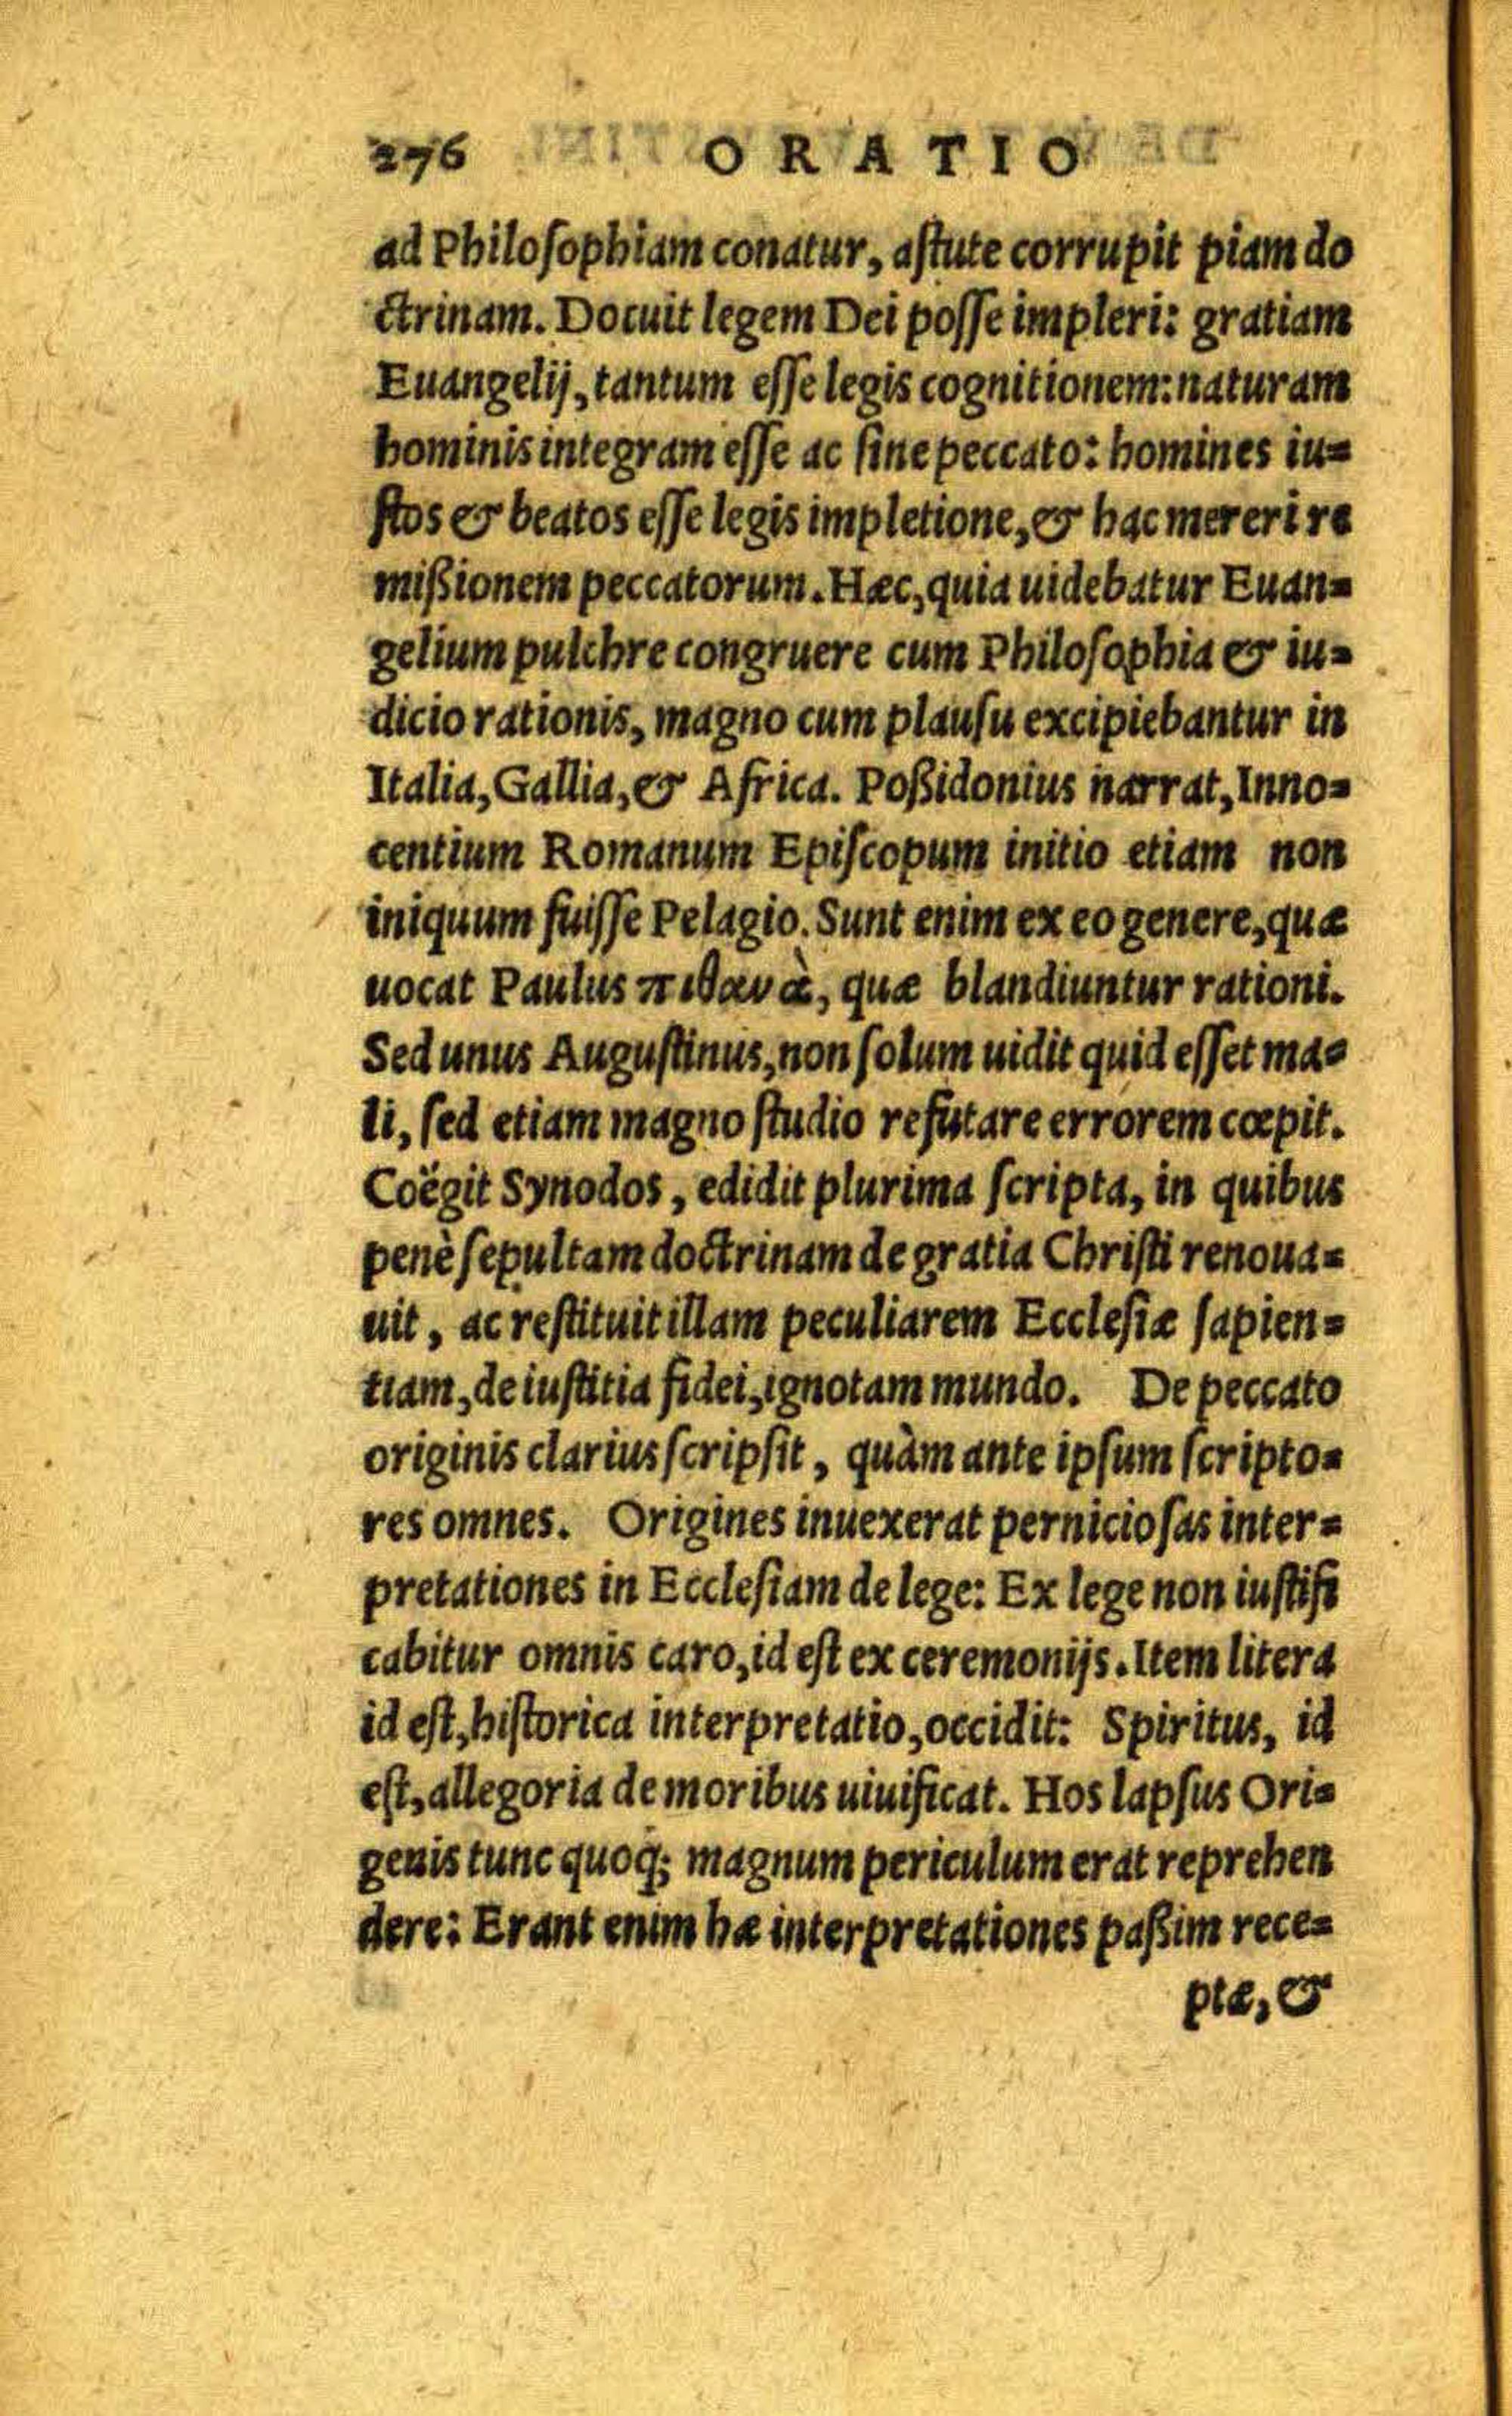 276 ORATIO
ad Philoſophiam conatur, aſtute corrupit piam do
ctrinam. Docuit legem Dei poſſe impleri: gratiam
Euangelij, tantum eſſe legis cognitionem: naturam
hominis integram eſſe ac ſine peccato: homines iu-
ſtos & beatos eſſe legis impletione, & hac mereri re
mißionem peccatorum. Hæc, quia uidebatur Euan-
gelium pulchre congruere cum Philoſophia & iu-
dicio rationis, magno cum plauſu excipiebantur in
Italia, Gallia, & Africa. Poßidonius narrat, Inno-
centium Romanum Epiſcopum initio etiam non
iniquum fuiſſe Pelagio. Sunt enim ex eo genere, quæ
uocat Paulus πιθανὰ, quæ blandiuntur rationi.
Sed unus Auguſtinus, non ſolum uidit quid eſſet ma-
li, ſed etiam magno ſtudio refutare errorem cœpit.
Coëgit Synodos, edidit plurima ſcripta, in quibus
penè ſepultam doctrinam de gratia Chriſti renoua-
uit, ac reſtituit illam peculiarem Eccleſiæ ſapien-
tiam, de iuſtitia fidei, ignotam mundo. De peccato
originis clarius ſcripſit, quàm ante ipſum ſcripto-
res omnes. Origines inuexerat pernicioſas inter-
pretationes in Eccleſiam de lege: Ex lege non iuſtifi
cabitur omnis caro, id eſt ex ceremonijs. Item litera
id eſt, hiſtorica interpretatio, occidit: Spiritus, id
eſt, allegoria de moribus uiuificat. Hos lapſus Ori-
genis tunc quoq; magnum periculum erat reprehen
dere: Erant enim hæ interpretationes paßim rece-
ptæ, &